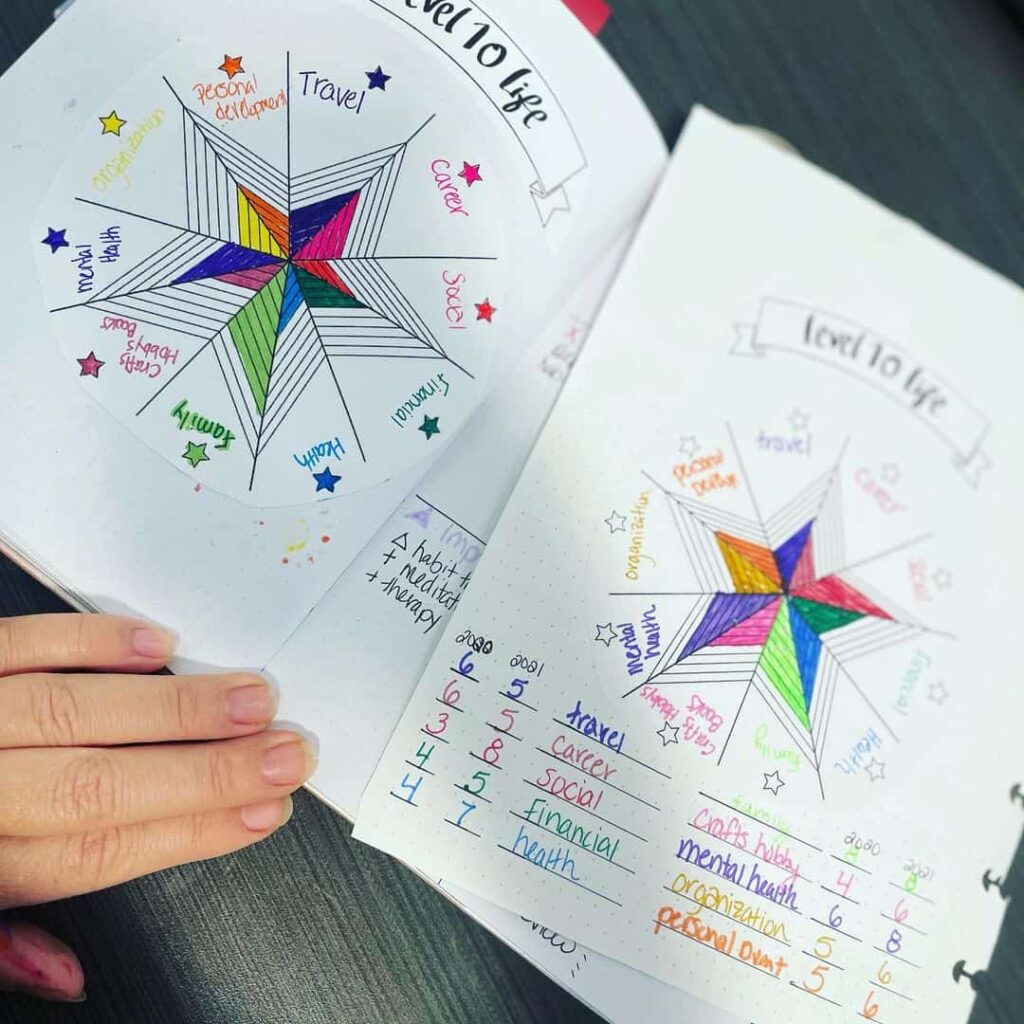 level 10 life
Travel
Career
Social
Financial
Health
family
Crafts
Hobbys
Books
mental
Health
organization
personal
development
habit
+ meditat
+ therapy
level 10 life
travel
Career
Social
Financial
Health
family
Crafts Hobbys
Books
mental
health
organization
personal
2020 2021
6 5 travel
6 5 career
3 8 social
4 5 Financial
4 7 health
2020 2021
family 8
crafts hobby 4 6
mental health 6 8
organization 5 6
personal Dvmt 5 6